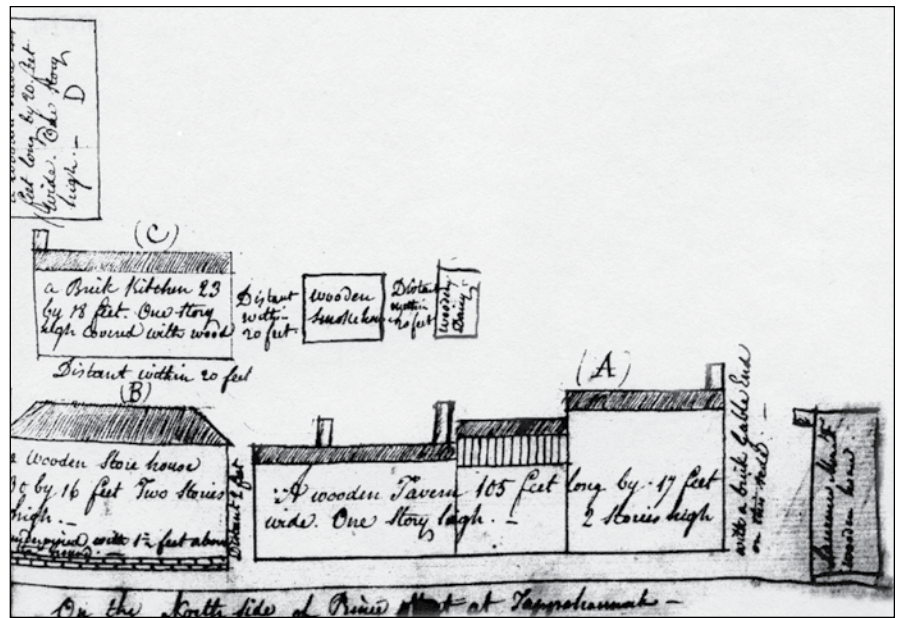 feet long by 20 feet
wide. One Story
high. — D
(C)
a Brick Kitchen 23
by 18 feet. One Story
high covered with wood
Distant
within
20 feet
wooden
Smokehouse
Distant
within
20 feet
wooden
Dairy
Distant within 20 feet
(B)
a Wooden Store house
by 16 feet Two Stories
high. —
underpined with 1½ feet above
ground. —
Distant 2 feet
(A)
A wooden Tavern 105 feet long by 17 feet
wide. One Story high. — 2 Stories high
with a brick Gable End
on this End. —
wooden house
On the North side of Prince at Tappahannock —